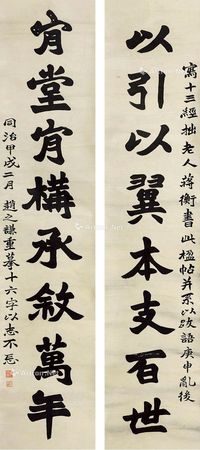 以引以翼本支百世
寫十三經拙老人蔣衡書此楹帖并系以跋語庚申亂後
肯堂肯構承敘萬年
同治甲戌二月趙之謙重摹十六字以志不忘